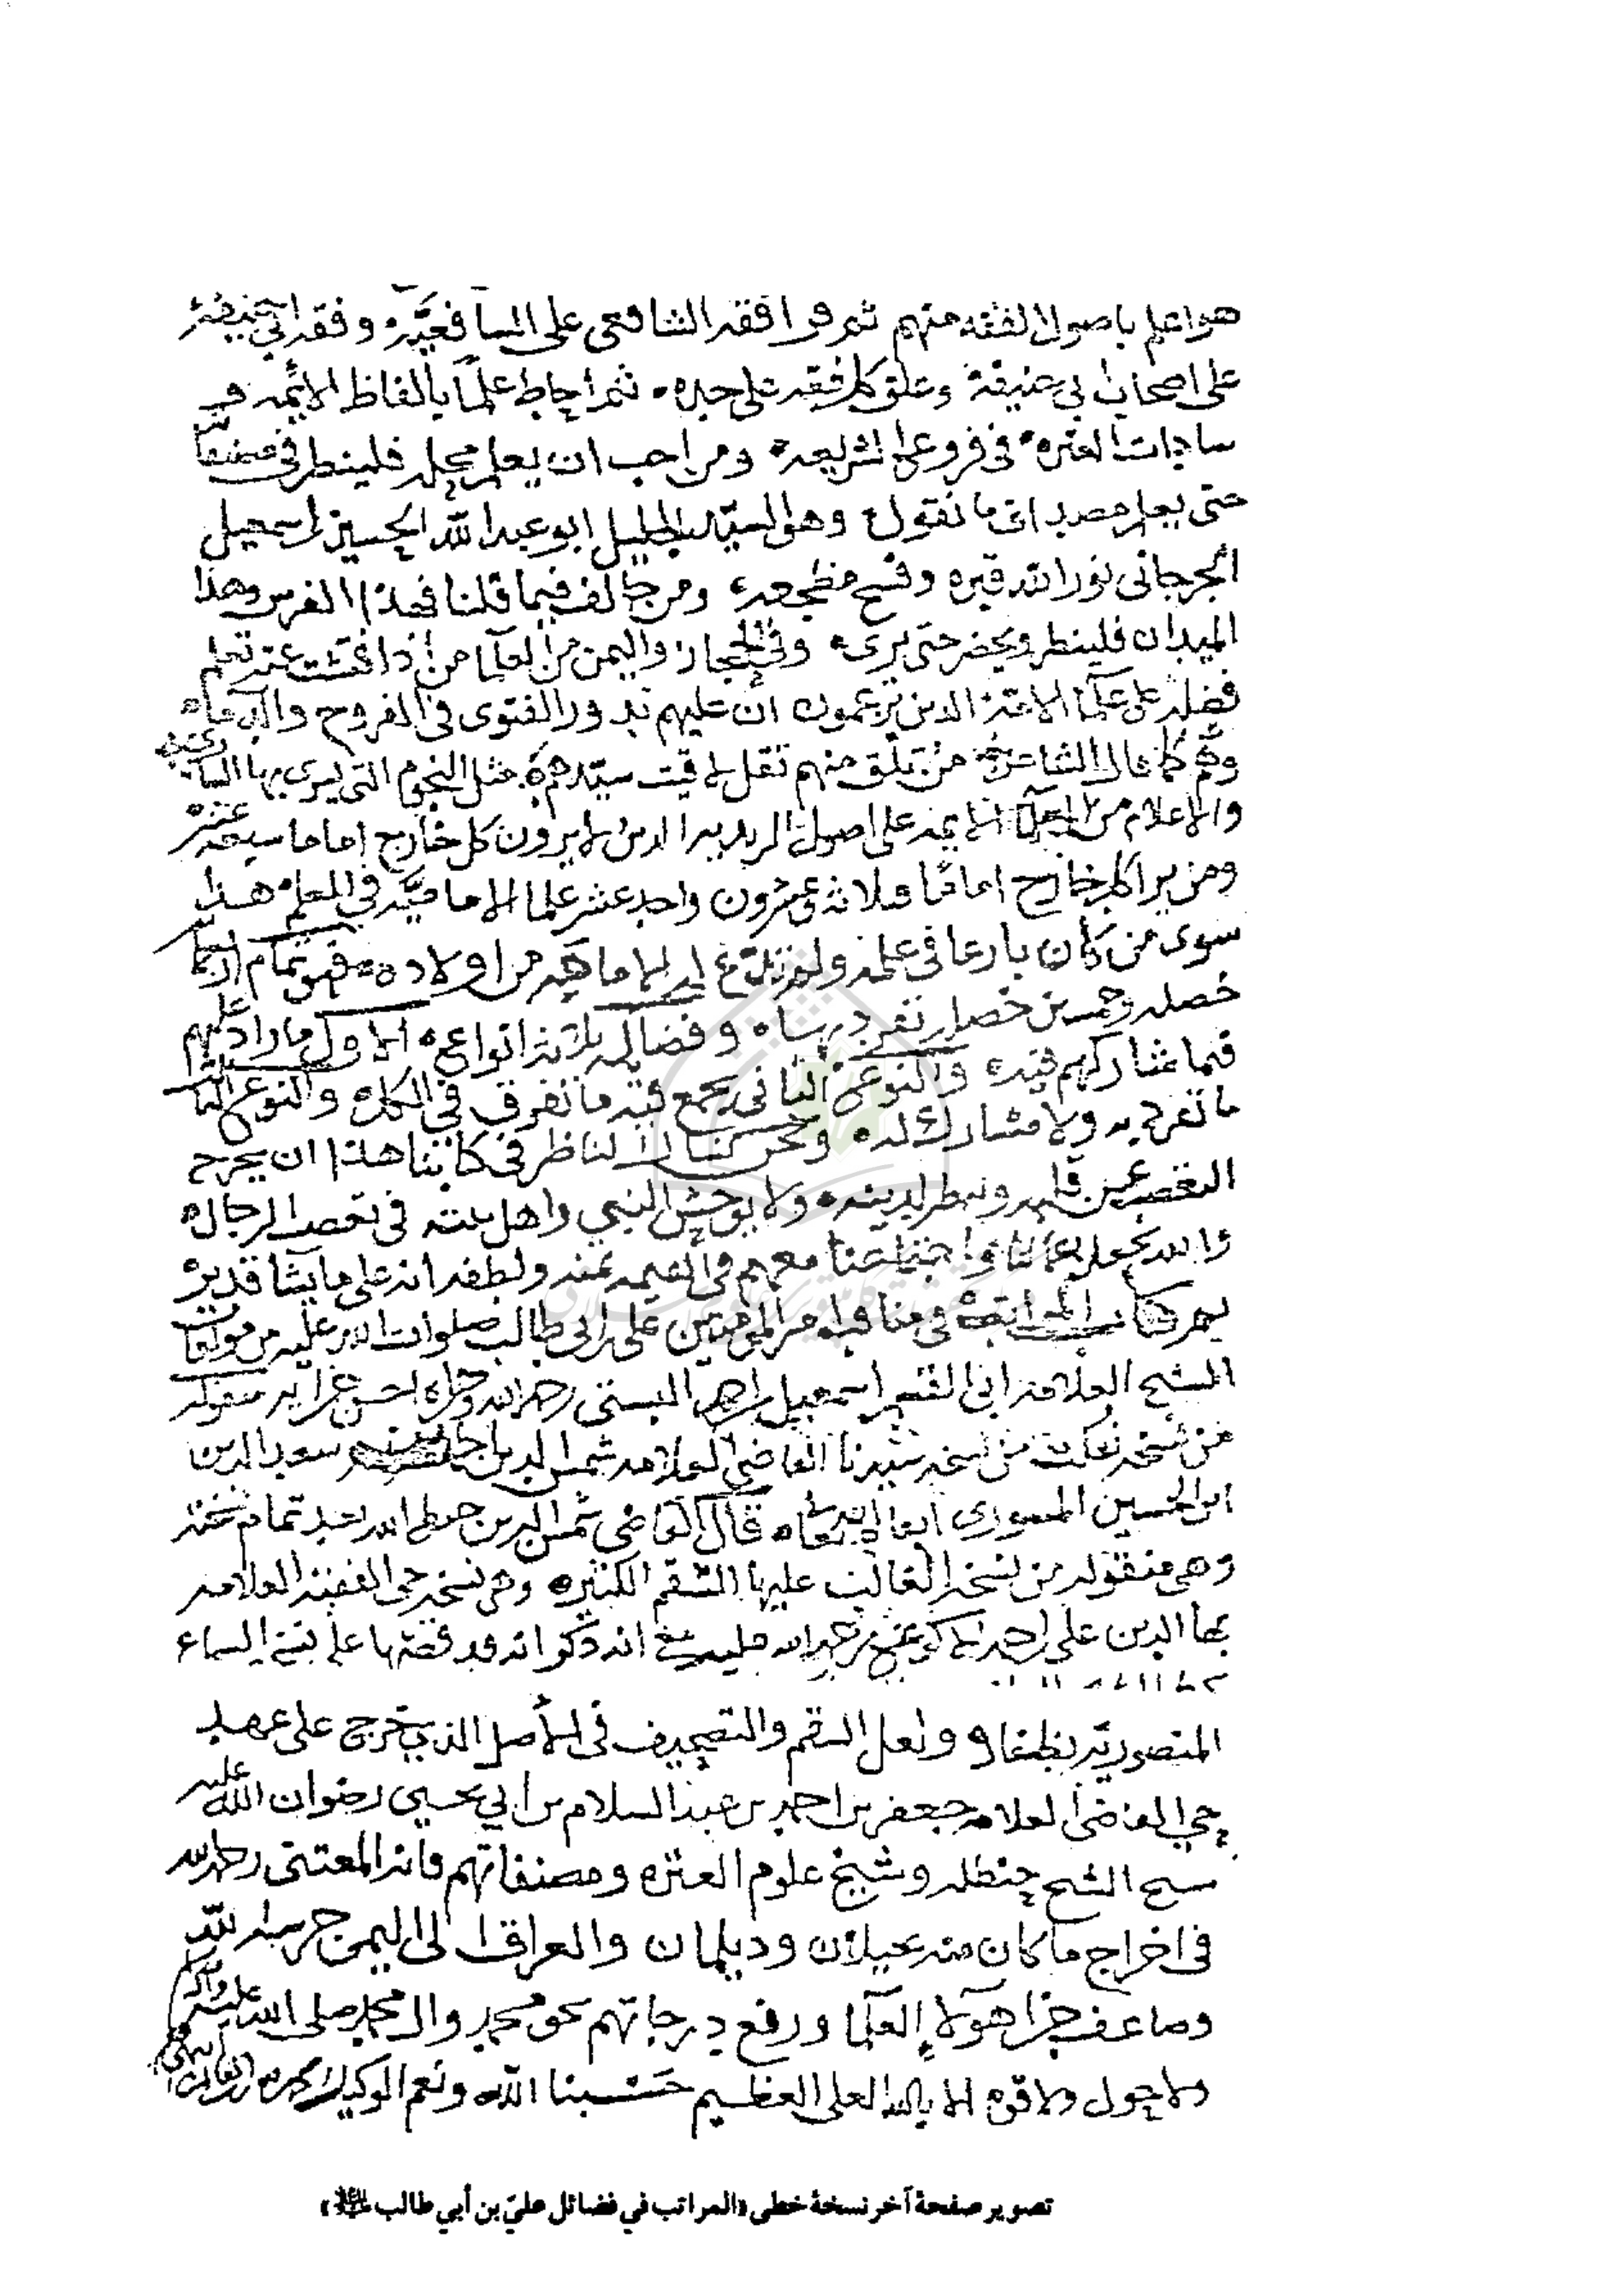 هو اعلم باصول الفقه منهم ثم قرا فقه الشافعى على الشافعيّة وفقه ابي حنيفة
على اصحاب ابى حنيفة وعلق كل فقه على حده ثم احاط علماً بالفاظ الائمه من
سادات العتره فى فروع الشريعه ومن احب ان يعلم محله فلينظر فى
حتى يعلم مصداق ما نقول وهو السيّد الجليل ابو عبد الله الحسين بن اسمعيل
الجرجانى نور الله قبره وفسح مضجعه ومن خالف فيما قلنا فهذا الفرس وهذا
الميدان فلينظر ويحضر حتى يرى وفى الحجاز واليمن من العلما من اذا فتشت عنه تعلم
فضله على علما الامة الذين يزعمون ان عليهم تدور الفتوى فى الفروع
وهم كما قال الشاعر من تلق منهم تقل لاقيت سيّدهم مثل النجوم التى يسرى بها السارى
والاعلام من الائمه على اصول الزيديه الذين لا يرون كل خارج اماما سبعة عشر
ومن يرا كل خارج اماماً فثلاثه وعشرون واحد عشر علما الاماميّه فى العلم هذا
سوى من كان بارعا فى علمه ولم تدّع له الامامه من اولاده فهو تمام اربعماية
خصله وخمسين خصله تفرد بها وفضائله ثلاثة انواع الاول ما زاد عليهم
فيما شاركهم فيه والنوع الثانى يجمع فيه ما تفرق فى الكل والنوع الثالث
ما تفرد به ولا مشارك له ونحن نسال الناظر فى كتابنا هذا ان يخرج
التعصب عن قلبه وينظر لدينه ولا يوحش النبي واهل بيته فى تعصب الرجال
والله يجعل اعمالنا واجتماعنا معهم فى القيمه بمنه ولطفه انه على ما يشا قدير
تم كتاب المراتب فى مناقب امير المومنين على بن ابى طالب صلوات الله عليه من مولفات
الشيخ العلامه ابى القسم اسمعيل بن احمد البستى رحمه الله وجزاه احسن جزايه منقوله
من نسخه نقلت من نسخه سيدنا القاضى العلامه شمس الدين احمد بن سعد الدين
ابن الحسين المسورى ابقاه الله تعالى قال القاضى شمس الدين حفظه الله بعد تمام نسخته
وهى منقوله من نسخه الغالب عليها السقم الكثير وهى نسخه حى الفقيه العلامه
بها الدين على بن احمد الاكوع رحمه الله انه ذكر انه قد قصها على نسخ السماع
المنصوريّه بظفار ولعل السقم والتصحيف فى الاصل الذي خرج على عهد
حي القاضى العلامه جعفر بن احمد بن عبد السلام بن ابي يحيى رضوان الله عليه
الشيخ حنظله وشيخ علوم العتره ومصنفاتهم فانه المعتنى رحمه الله
فى اخراج ما كان منه بجيلان وديلمان والعراق الى اليمن حرسه الله
وضاعف جزا هولاء العلما ورفع درجاتهم بحق محمد وال محمد صلى الله عليه وآله
ولا حول ولا قوه الا بالله العلى العظيم حسبنا الله ونعم الوكيل
تصوير صفحهٔ آخر نسخهٔ خطى «المراتب في فضائل عليّ بن أبي طالب ﷵ»